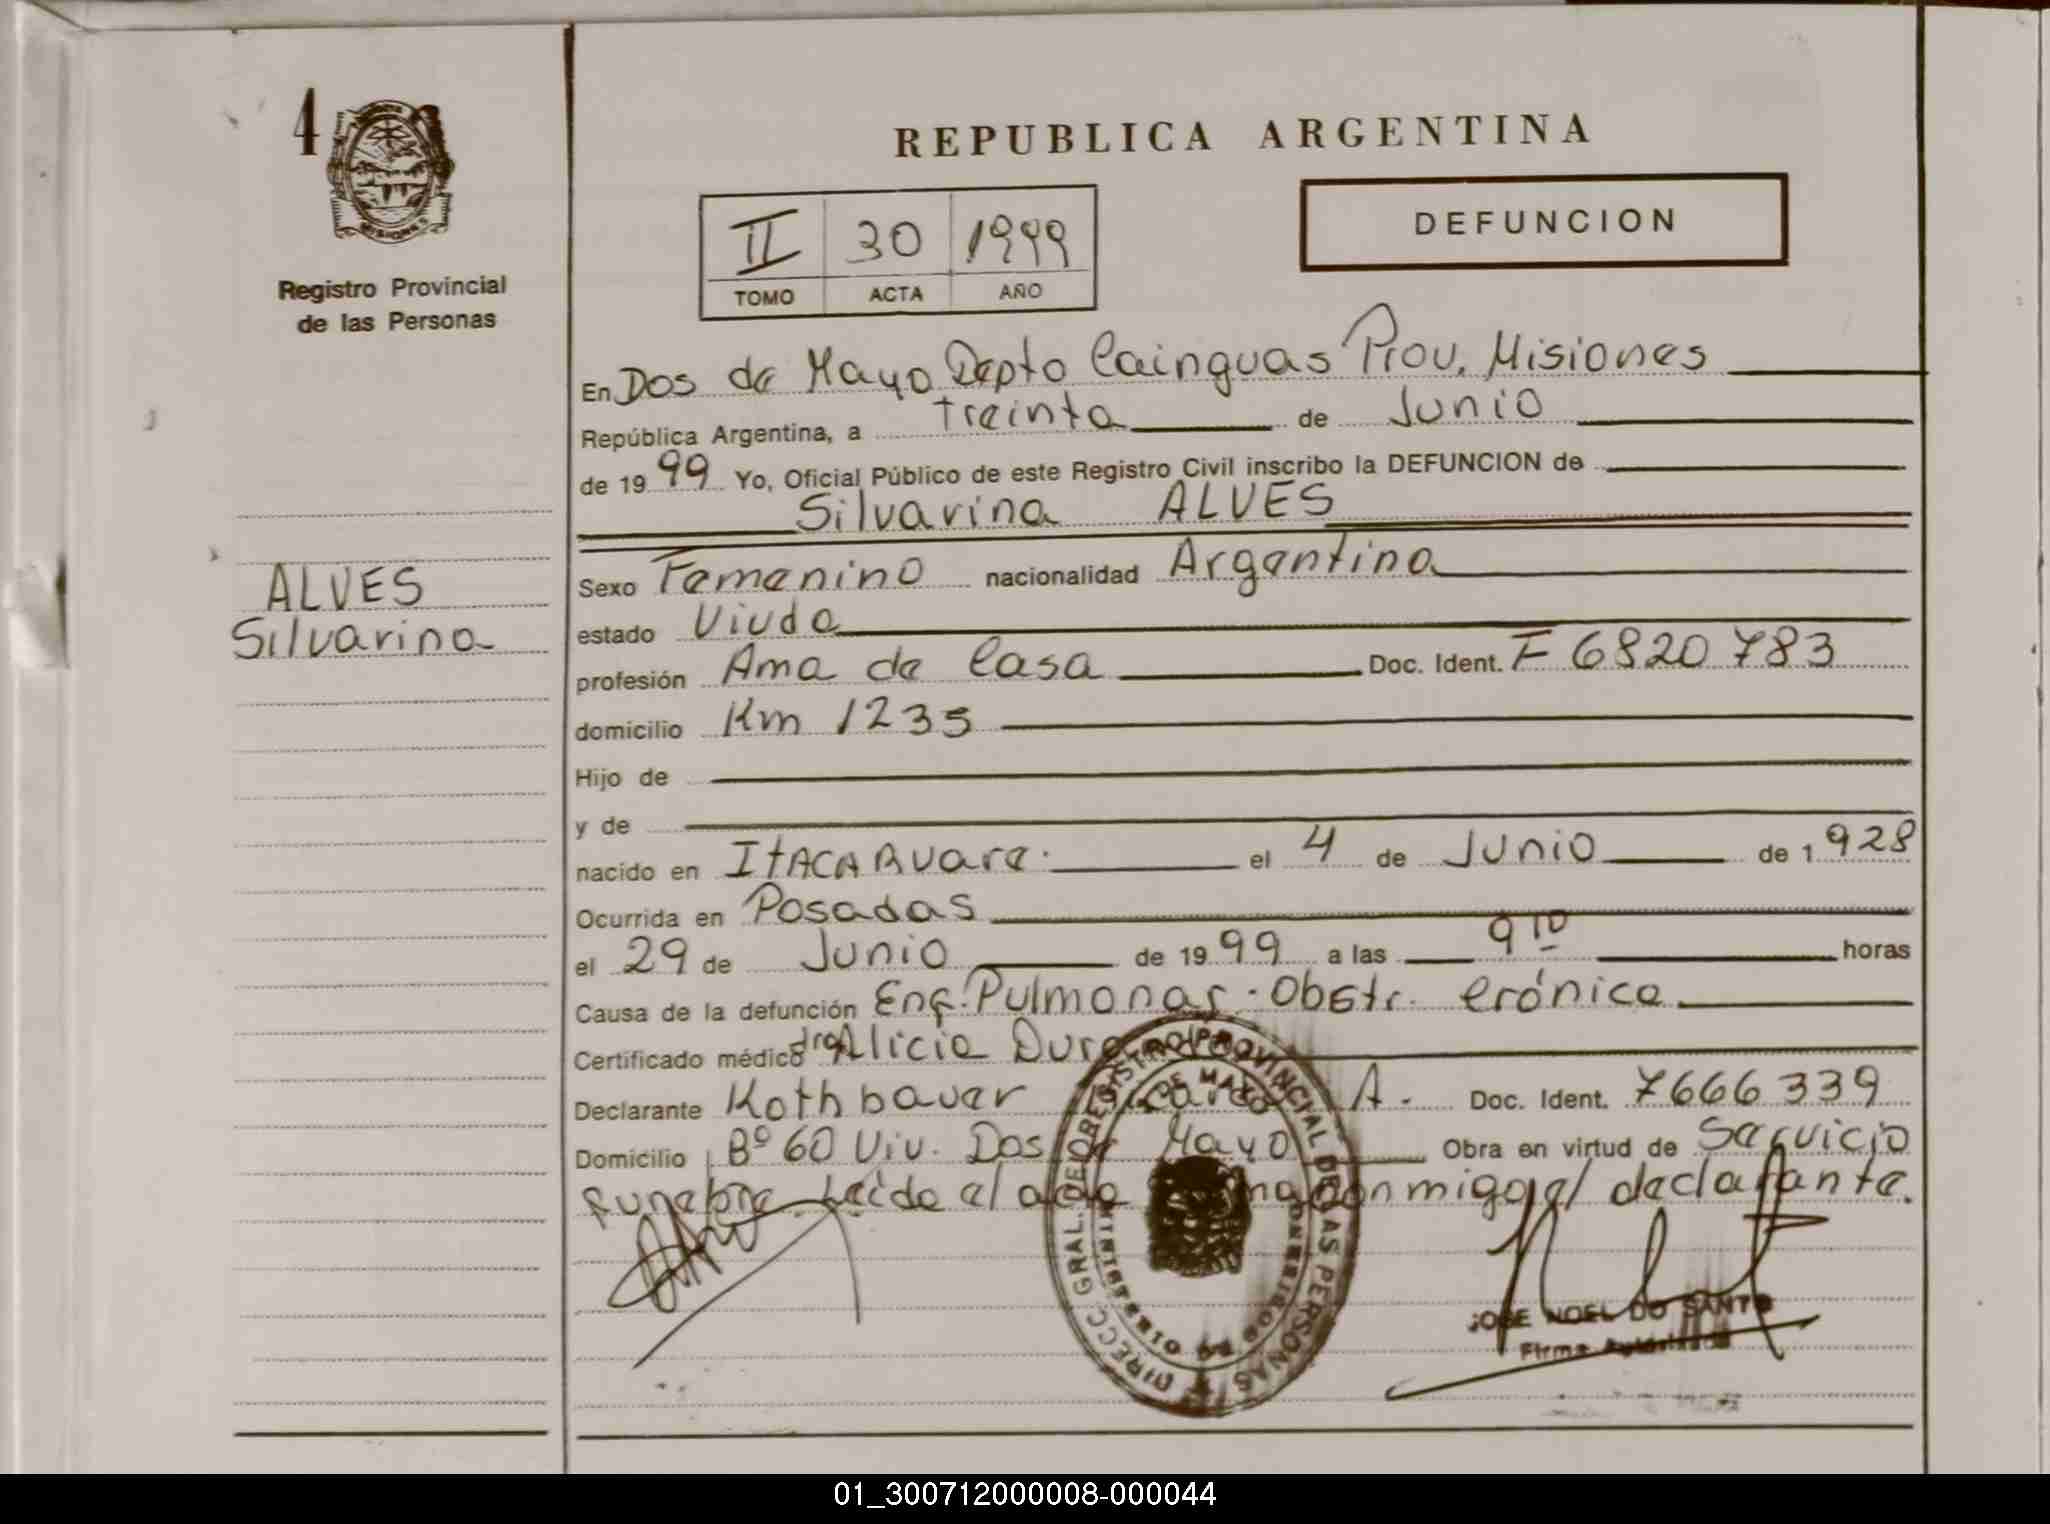 4
MISIONES
Registro Provincial
de las Personas
ALVES
Silvarina
REPUBLICA ARGENTINA
II 30 1999
TOMO ACTA AÑO
DEFUNCION
En Dos de Mayo Depto Cainguas Prov. Misiones
República Argentina, a Treinta de Junio
de 1999 Yo, Oficial Público de este Registro Civil inscribo la DEFUNCION de
Silvarina ALVES
Sexo Femenino nacionalidad Argentina
estado Viuda
profesión Ama de Casa Doc. Ident. F 6820783
domicilio Km 1235
Hijo de
y de
nacido en ItACARuare. el 4 de Junio de 1928
Ocurrida en Posadas
el 29 de Junio de 1999 a las 9 10 horas
Causa de la defunción Enf. Pulmonar. Obstr. crónica
Certificado médico dra Alicia
Declarante Kothbauer A. Doc. Ident. 7666339
Domicilio Bº 60 Viv. Dos de Mayo Obra en virtud de Servicio
funebre. Leido el acta conmigo el declarante.
DIRECC. GRAL. DE REGISTRO PROVINCIAL DE LAS PERSONAS
DE MAYO
JOSE NOEL DO SANTO
Firma Autorizada
01_300712000008-000044